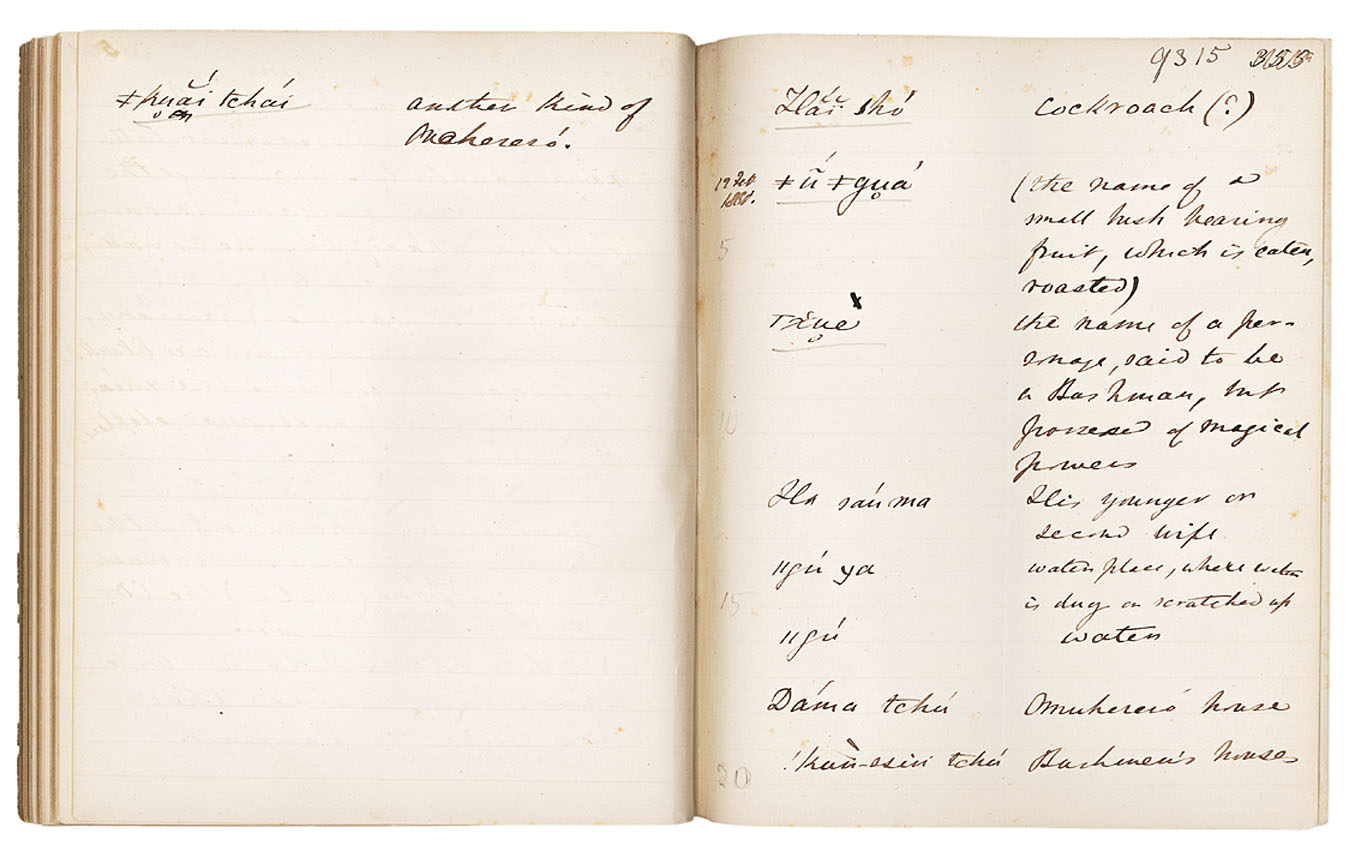 ǂkụắi tchái another kind of
Makereró.
9315
Hắi shó cockroach (?)
19 Feb. ǂṹ ǂgụá (the name of a
small bush bearing
5 fruit, which is eaten,
roasted)
the name of a per-
sonage, said to be
a Bushman, but
10 possessed of magical
powers
Ha sáuma His younger or
second wife
ǁgú ya water place, where water
15 is dug or scratched up
ǁgú water
Dáma tchú Omuhereró house
20 tchú Bushmen's houses